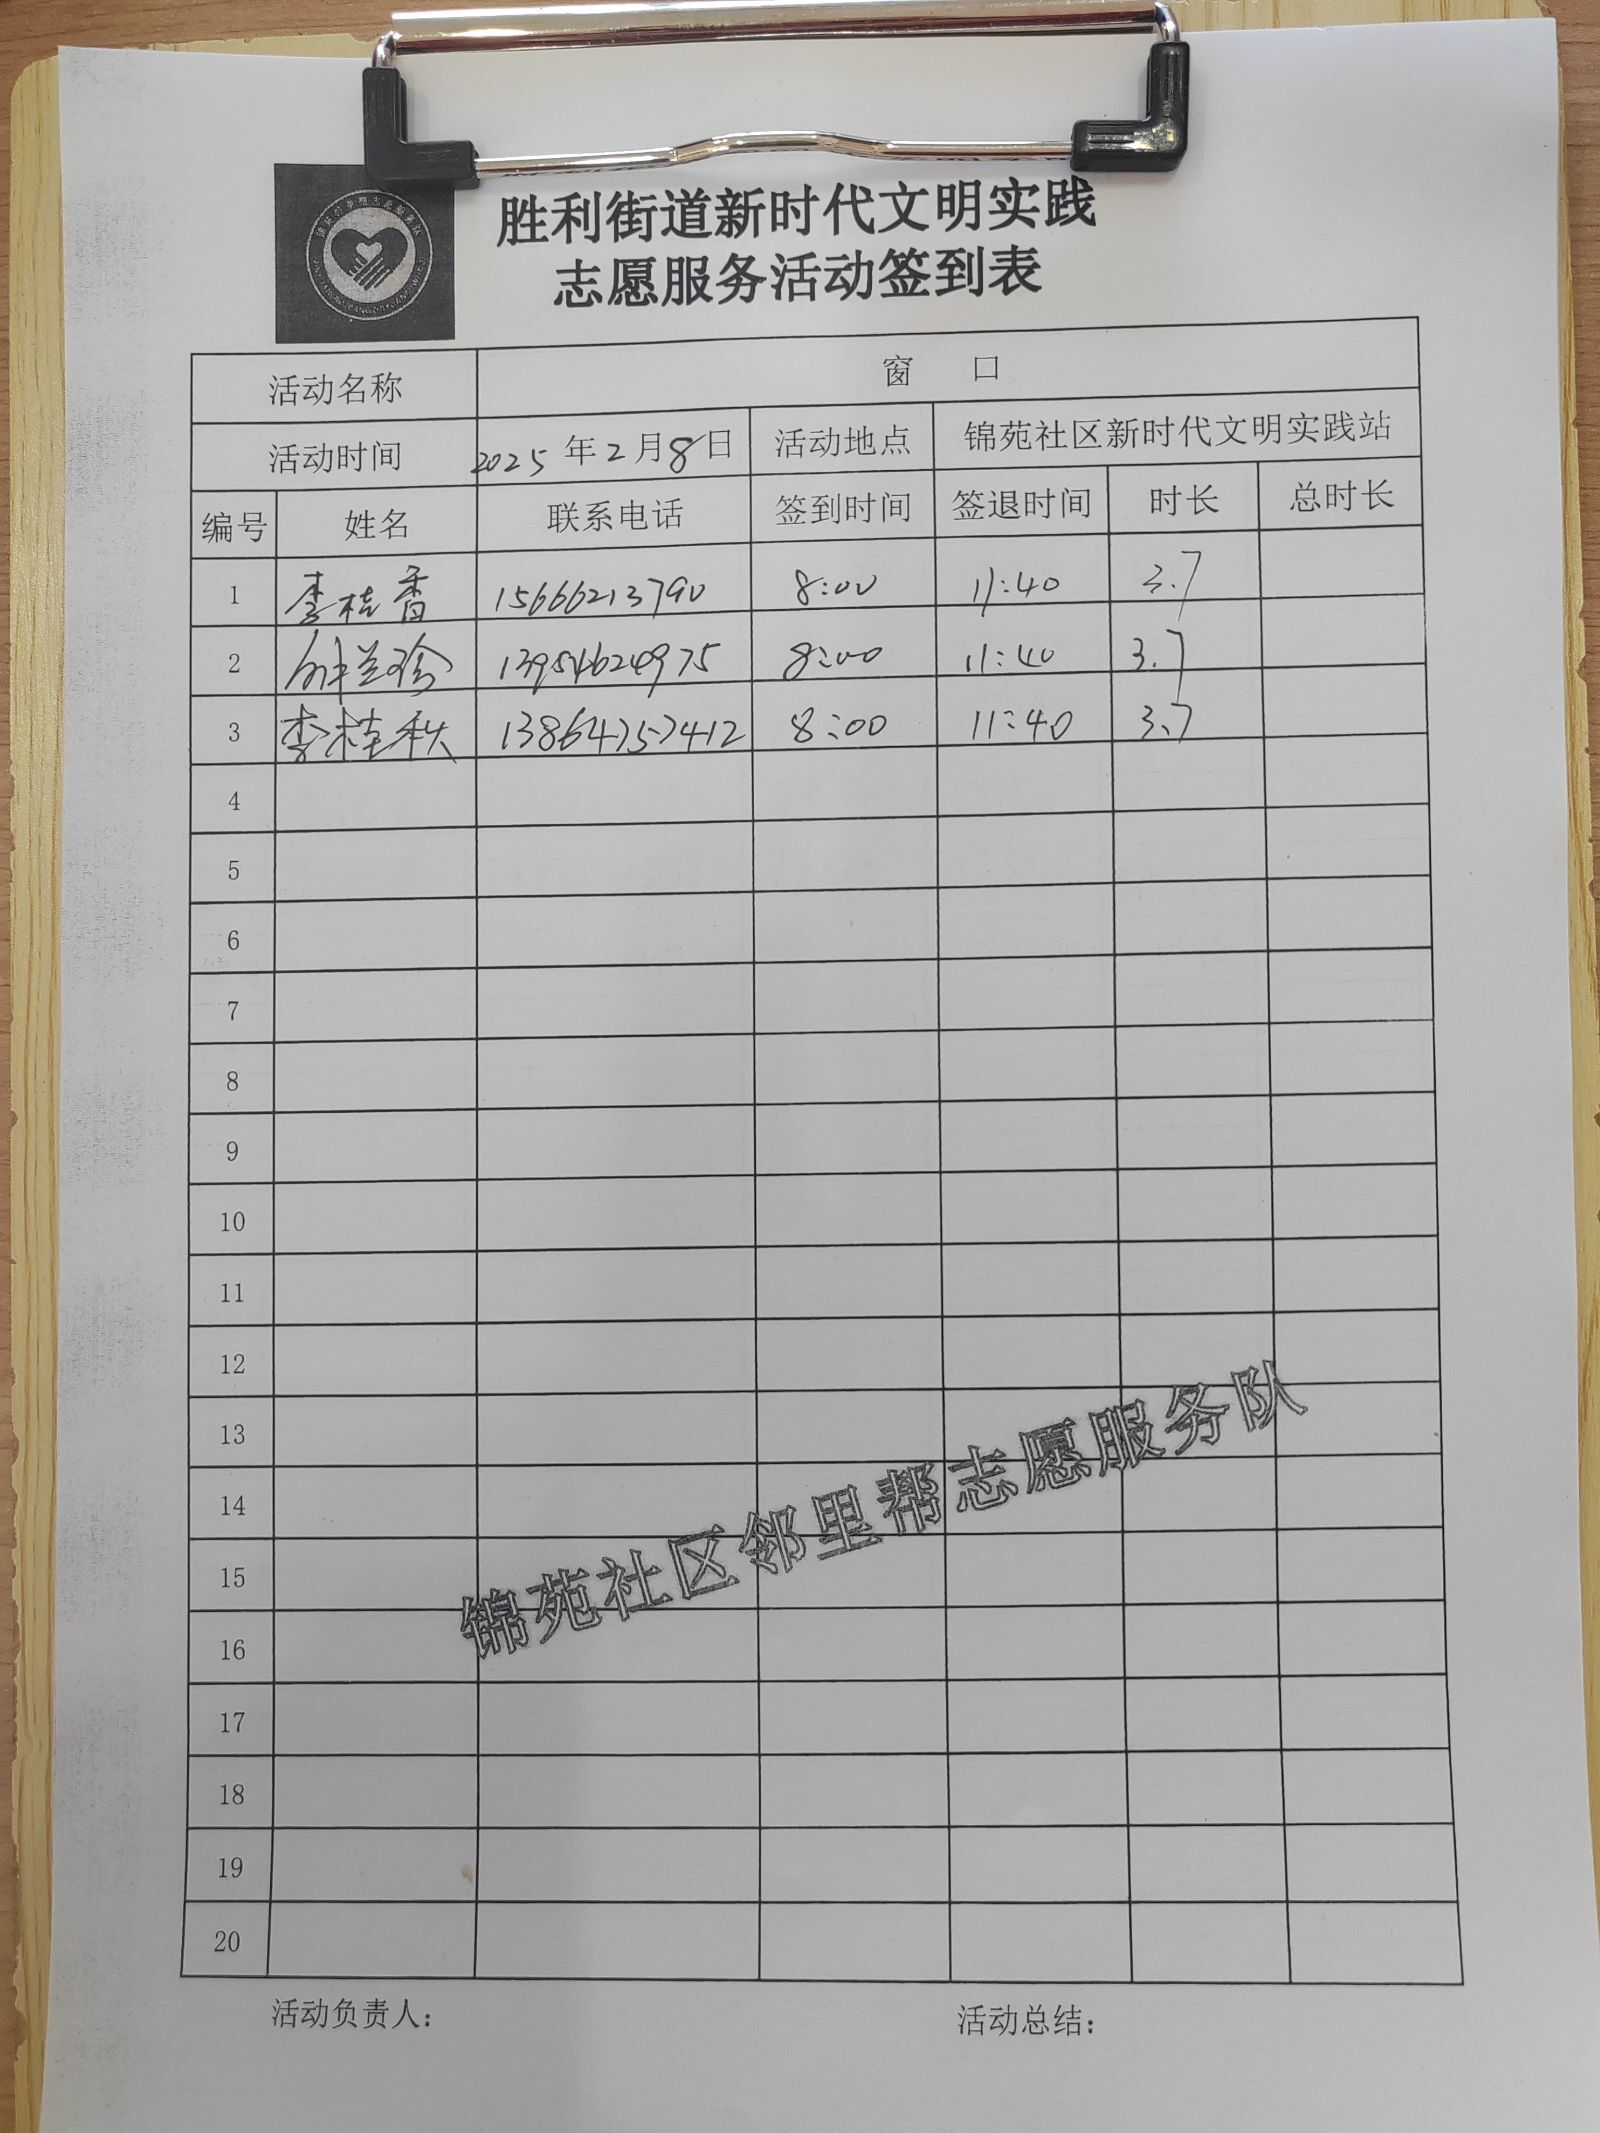 胜利街道新时代文明实践
志愿服务活动签到表
活动名称 窗 口
活动时间 2025 年 2 月 8 日 活动地点 锦苑社区新时代文明实践站
编号 姓名 联系电话 签到时间 签退时间 时长 总时长
1 李桂香 15666213790 8:00 11:40 3.7
2 兰珍 13954624975 8:00 11:40 3.7
3 李桂秋 13864757412 8:00 11:40 3.7
4
5
6
7
8
9
10
11
12
13
14
15
16
17
18
19
20
锦苑社区邻里帮志愿服务队
活动负责人: 活动总结: